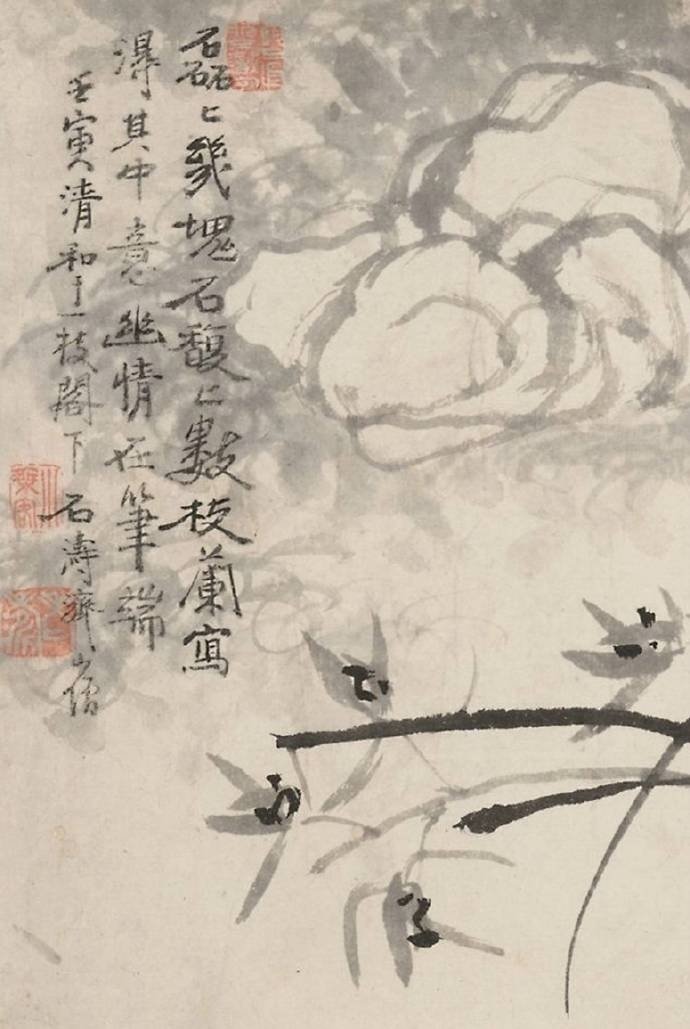 磊〻幾塊石馥〻數枝蘭寫
得其中意幽情在筆端
壬寅清和于一枝閣下石濤濟山僧